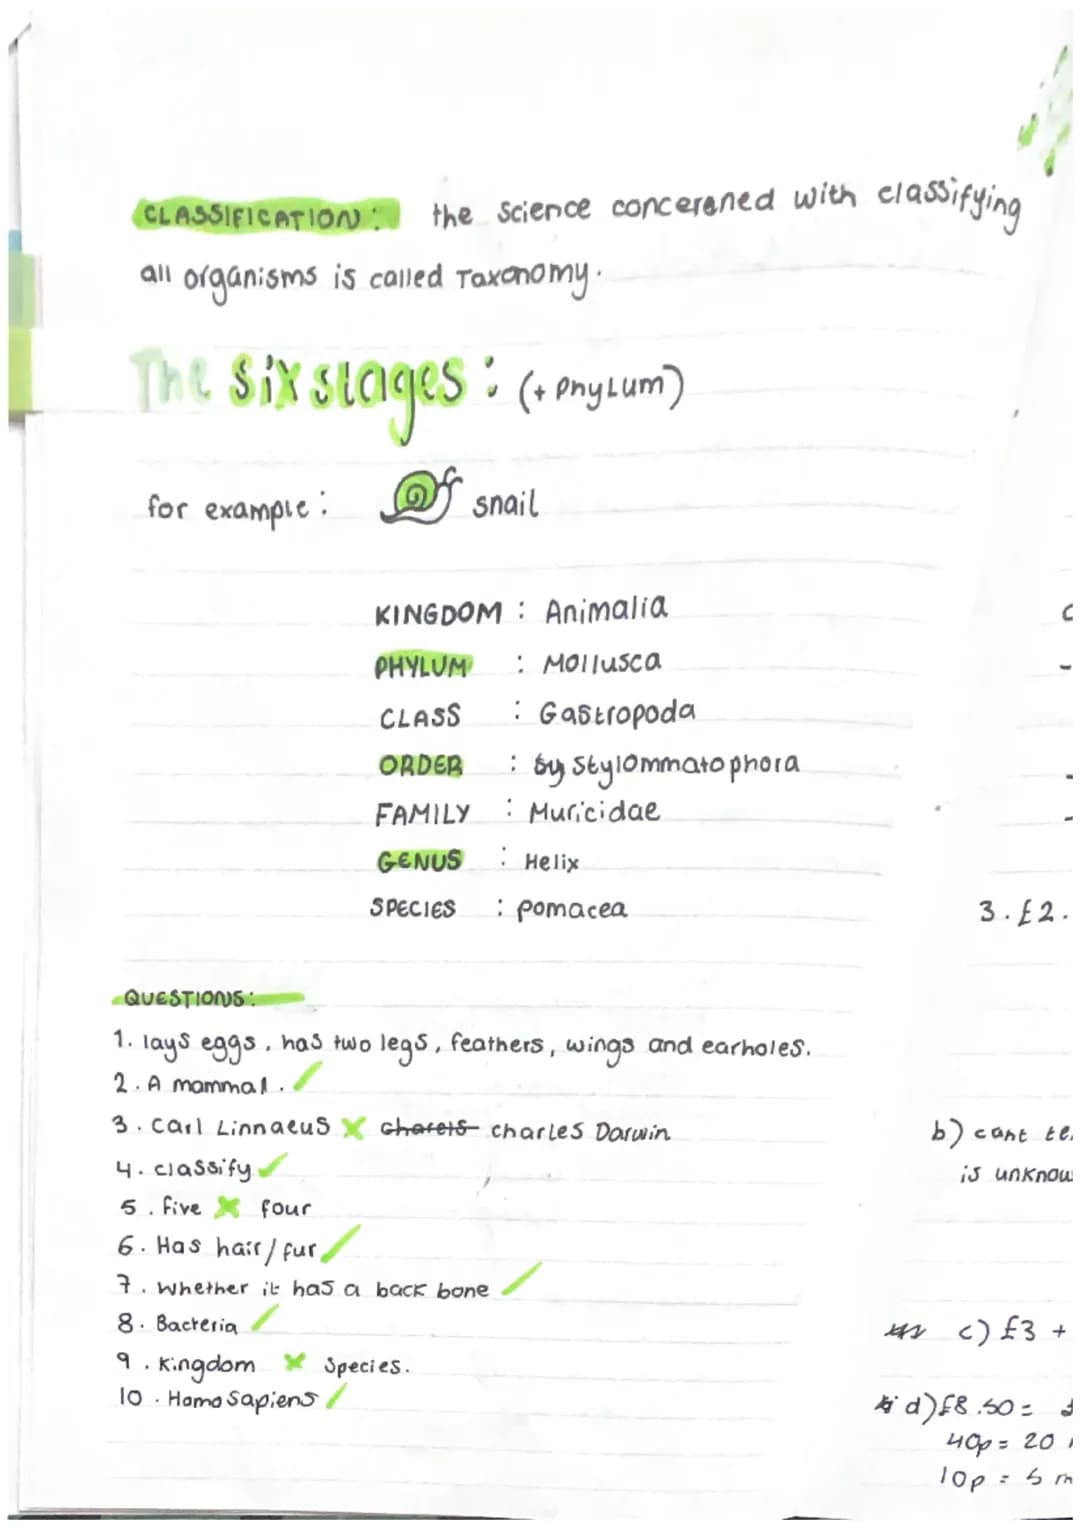 CLASSIFICATION: the science concerened with classifying
all organisms is called Taxonomy.
The six stages: (+ Phylum)
for example: snail
KINGDOM : Animalia
PHYLUM : Mollusca
CLASS : Gastropoda
ORDER : Stylommatophora
FAMILY : Muricidae
GENUS : Helix
SPECIES : pomacea
QUESTIONS:
1. lays eggs, has two legs, feathers, wings and earholes.
2. A mammal.
3. Carl Linnaeus charles Darwin
4. classify
5. five four
6. Has hair/fur
7. Whether it has a back bone
8. Bacteria
9. Kingdom Species.
10. Homo Sapiens
3. £2.
b) cant
is
c) £3 +
d) £8.50 =
40p = 20
10p = 5